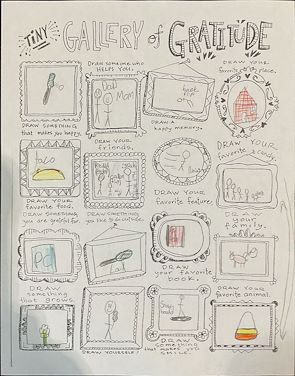 TINY GALLERY of GRATITUDE
Draw someone who
HELPS YOU.
DRAW YOUR
favorite place.
Dad
Mom
DRAW SOMETHING
that makes you happy.
DRAW A
happy memory.
DRAW YOUR
friends.
DRAW YOUR
favorite candy.
taco
DRAW YOUR
favorite food.
DRAW YOUR
favorite feature.
DRAW SOMETHING
you are grateful for.
DRAW SOMETHING
you like to do outside.
DRAW
your
family.
DRAW
your favorite
book.
DRAW
something
that grows.
DRAW YOUR
favorite animal.
DRAW YOURSELF!
DRAW
something
that makes you
SMILE!